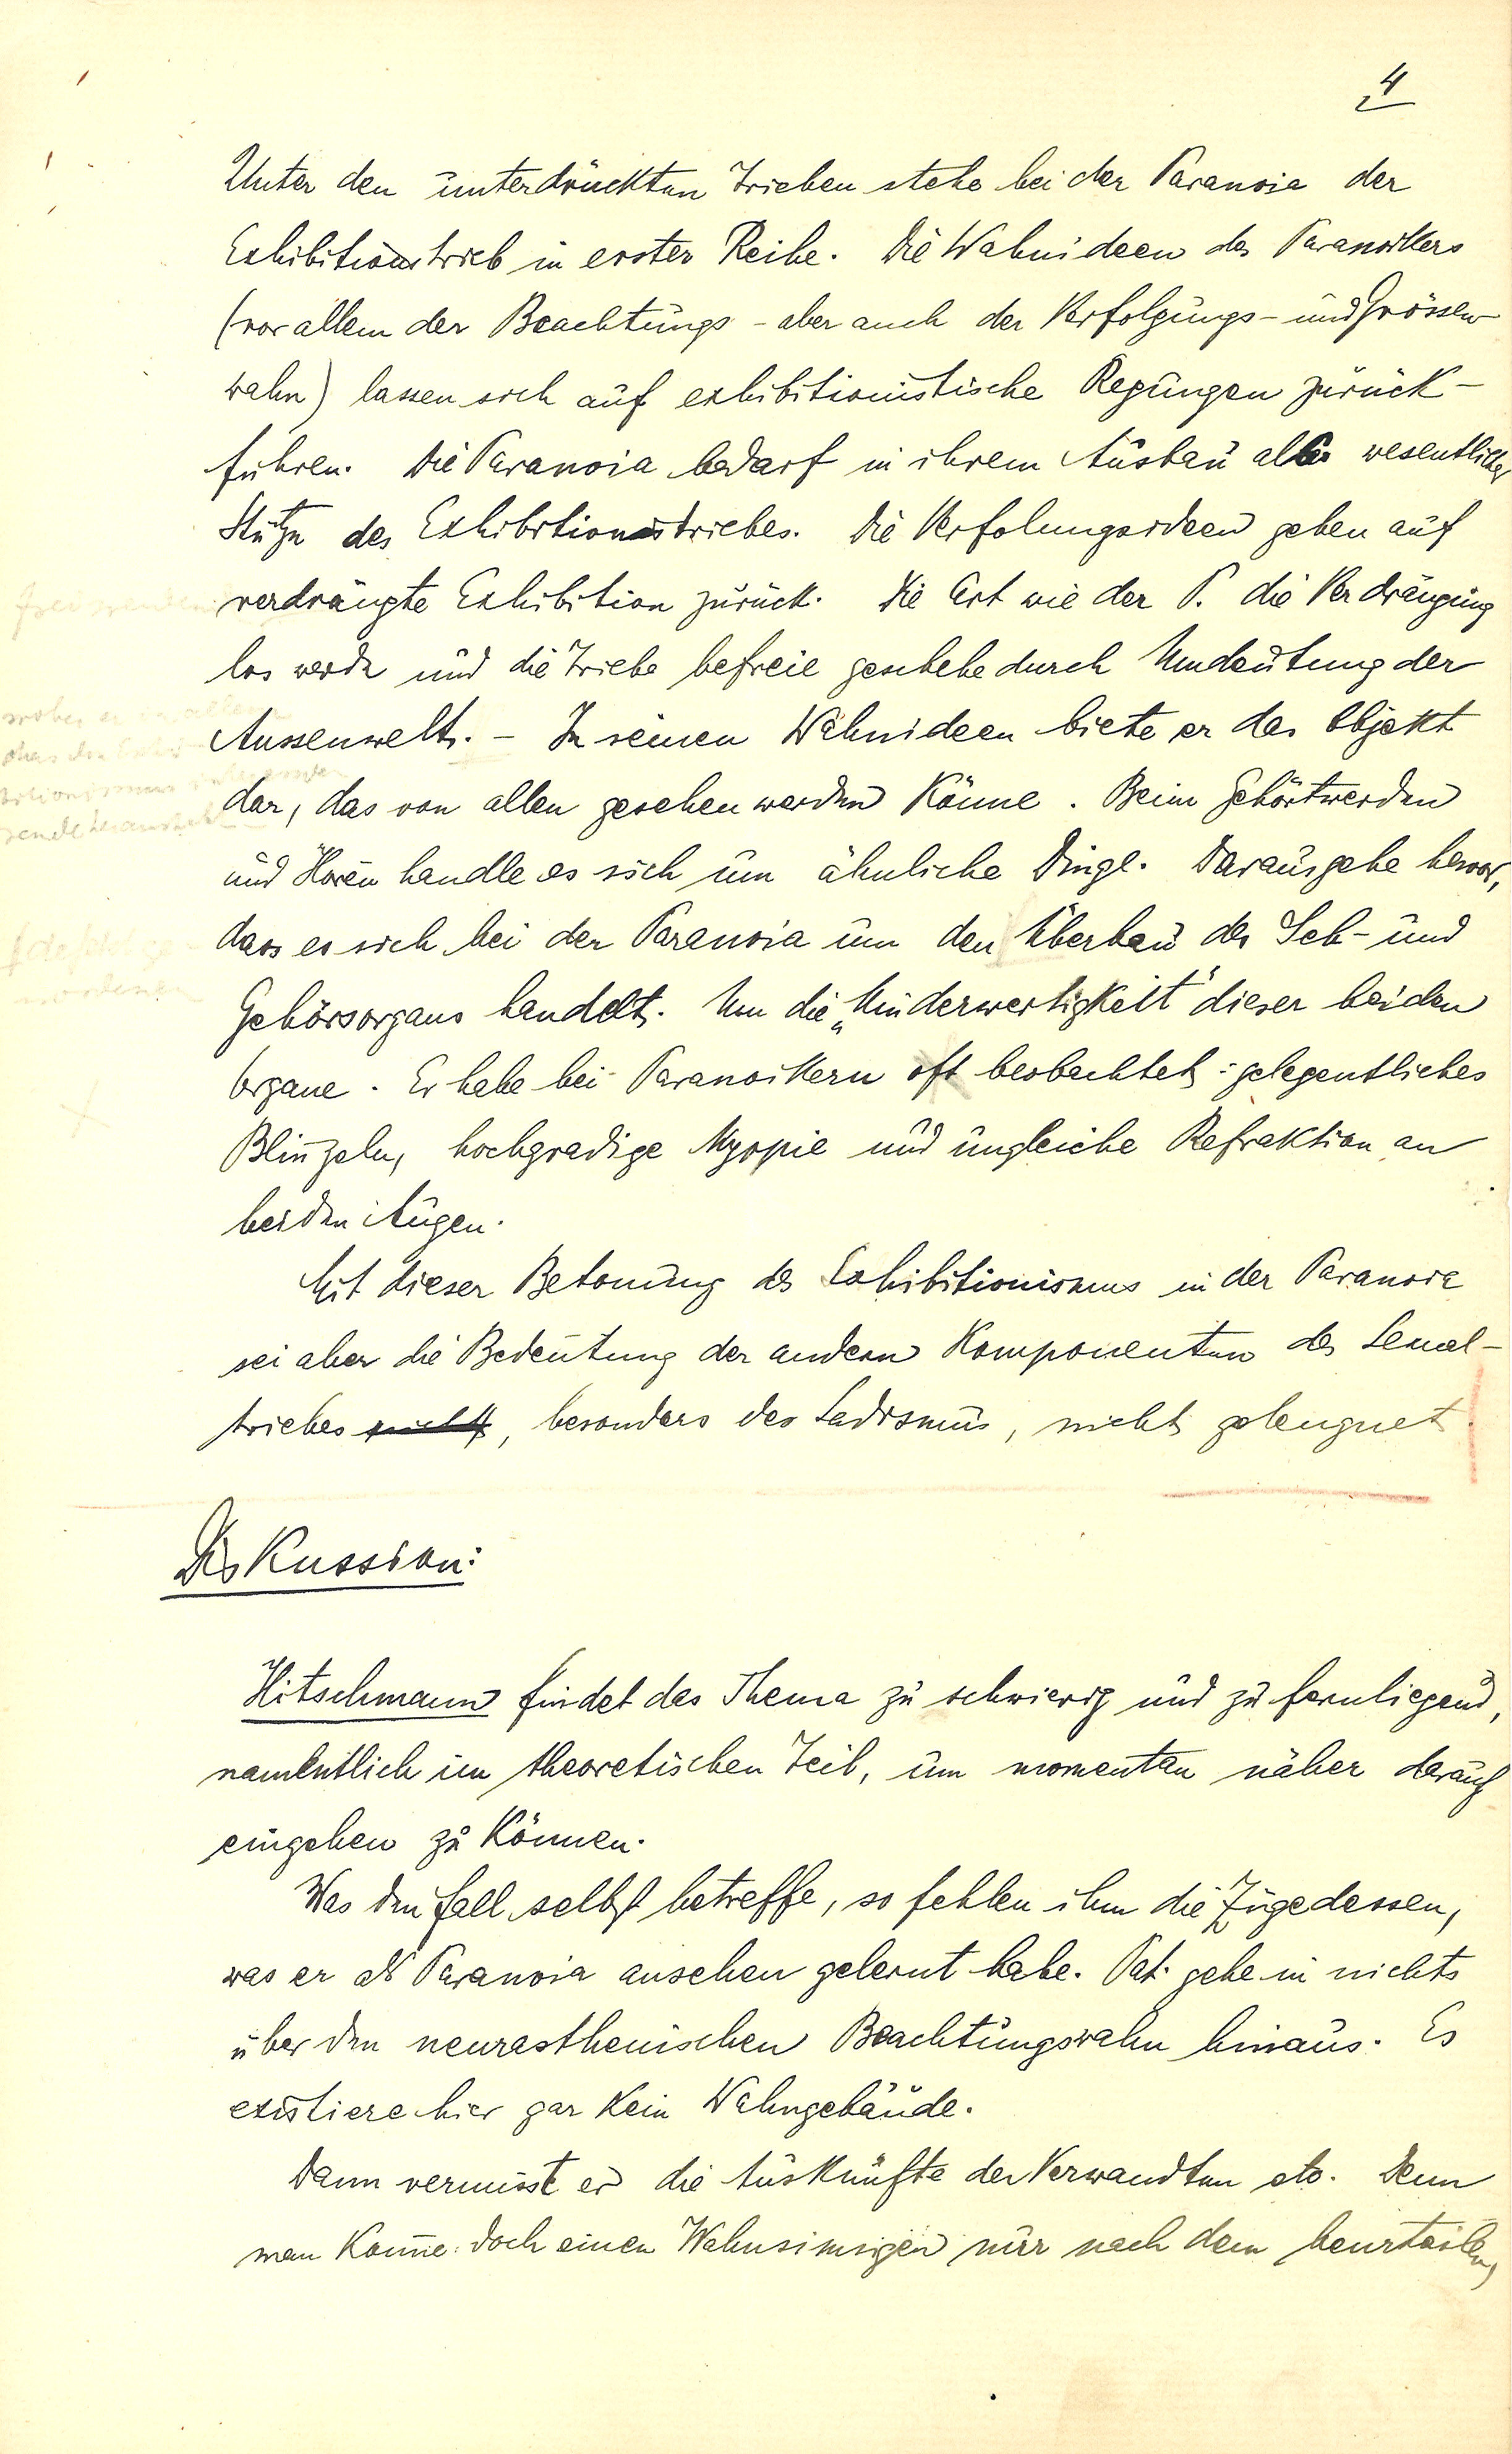 4
Unter den unterdrückten Trieben stehe bei der Paranoia der
Exhibitionstrieb in erster Reihe. Die Wahnideen des Paranoikers
(vor allem der Beachtungs- aber auch der Verfolgungs- und Grössen-
wahn) lassen sich auf exhibitionistische Regungen zurück-
führen. Die Paranoia bedarf in ihrem Ausbau als wesentlicher
Stütze des Exhibitionstriebes. Die Verfolungsideen gehen auf
verdrängte Exhibition zurück. Die Art wie der P. die Verdrängung
los werde und die Triebe befreie geschehe durch Umdeutung der
Aussenwelt. – In seinen Wahnideen biete er das Objekt
dar, das von allen gesehen werden könne. Beim Gehörtwerden
und Hören handle es sich um ähnliche Dinge. Daraus gehe hervor,
dass es sich bei der Paranoia um den Überbau des Seh- und
Gehörsorgans handelt. Um die „Minderwertigkeit" dieser beiden
Organe. Er habe bei Paranoikern oft beobachtet: gelegentliches
Blinzeln, hochgradige Myopie und ungleiche Refraktion an
beiden Augen.
Mit dieser Betonung des Exhibitionismus in der Paranoia
sei aber die Bedeutung der andern Komponenten des Sexual-
triebes nicht, besonders des Sadismus, nicht geleugnet.
Diskussion:
Hitschmann findet das Thema zu schwierig und zu fernliegend,
namentlich im theoretischen Teil, um momentan näher darauf
eingehen zu können.
Was den Fall selbst betreffe, so fehlen ihm die Züge dessen,
was er als Paranoia ansehen gelernt habe. Pat. gehe in nichts
über den neurasthenischen Beachtungswahn hinaus. Es
existiere hier gar kein Wahngebäude.
Dann vermisst er die Auskünfte der Verwandten etc. Denn
man könne doch einen Wahnsinnigen nur nach dem beurteilen,